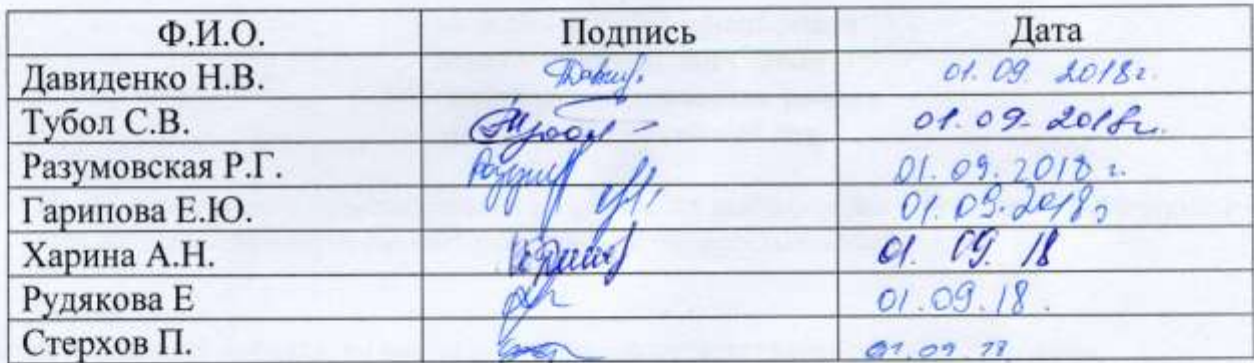 Ф.И.О. Подпись Дата
Давиденко Н.В. 01.09.2018г.
Тубол С.В. 01.09.2018г.
Разумовская Р.Г. 01.09.2018г.
Гарипова Е.Ю. 01.09.2018г
Харина А.Н. 01.09.18
Рудякова Е 01.09.18.
Стерхов П.